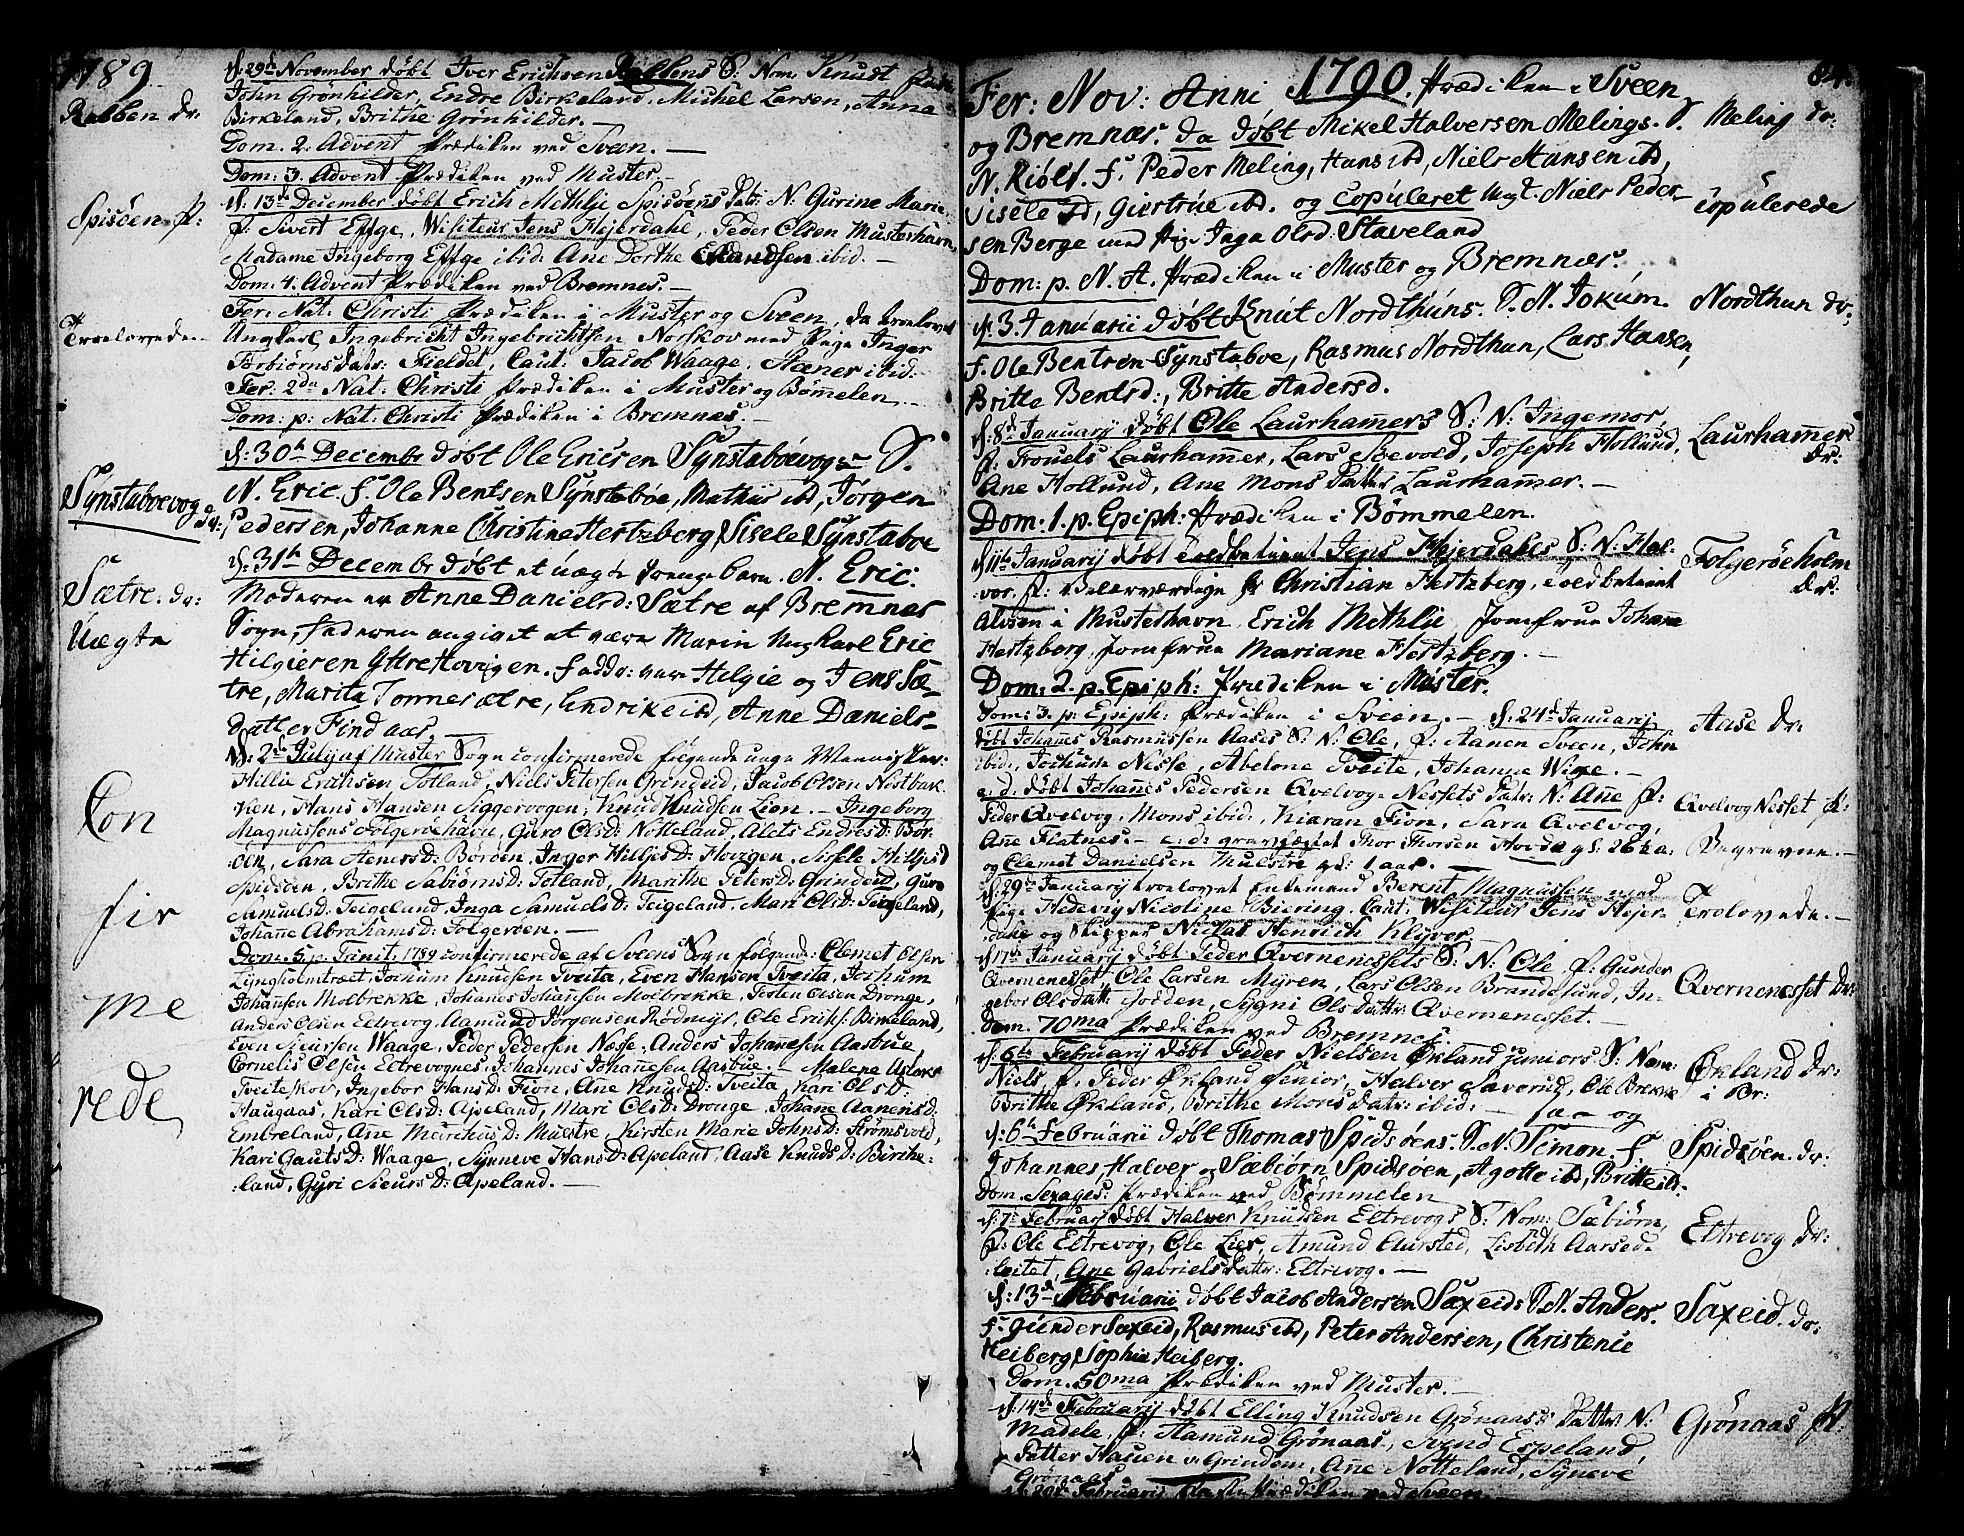 1789
d: 29d November døbt Iver Erichsen Rabbens S: Nom: Knudt
Rabben dr:
John Grønhilder, Endre Birkeland, Michel Larsen, Anna
Birkeland, Brithe Grønhilder. —
Dom. 2. Advent Prædiken ved Sveen. —
Dom: 3. Advent Prædiken ved Muster. —
Spisøen P:
d: 13d December døbt Erich Methlje Spisøens Datr: N: Gurine Marie
f: Sivert Effge, Visiteur Jens Hejerdahl, Peder Olsen Musterhavn,
Madame Ingeborg Effge ibid: Ane Dorthe ibid. —
Dom: 4. Advent Prædiken ved Bremnes. —
Fer: Nat: Christi Prædiken i Muster og Sveen, da troelovet
Troelovede.
Ungkarl Ingebricht Ingebrichtsen Norskov med Pige Inger
Torbiørnsdatr: Fieldet, Caut: Jacob Waage, Stæner ibid.
Fer: 2da Nat: Christi Prædiken i Muster og Bømelen. —
Dom: p: Nat: Christi Prædiken i Bremnes. —
d: 30te Decembr døbt Ole Ericsen Synstabøevog S.
Synstabøevog dr:
N. Eric f. Ole Bentsen Synstabøe, Mathis ibd, Jørgen
Pedersen, Johanne Christine Hertzberg, Sisele Synstaboe
d. 31te Decembr døbt et uægte drengebarn. N. Eric.
Sætre. dr:
Moderen er Anne Danielsd: Sætre af Bremnæs
Uægte
Sogn, faderen angivet at være Marin Ungkarl Eric
Hilgiesen Yttrehovigen. faddr: vare Helgie og Jens Sæ-
tre, Marita Tonnesætre, Endrike ibd, Anne Daniels-
datter Find aas. —
d: 2d Julij af Muster Sogn confirmerede følgende unge Mennisker:
Hillie Erichsen Totland, Niels Petersen Grindeid, Jacob Olsen Nøstbak-
Con
ken, Hans Hansen Siggervogen, Knud Knudsen Lien. — Ingeborg
Magnussens Folgerøhavn, Guro Olsd: Notteland, Alets Endresd: Bor-
øen, Sara Stenersd: Børøen, Inger Hilljesd: Hovigen, Sisele Hilljesd
Spidsøen, Brithe Sabiørnsd: Totland, Marithe Petersd: Grindeid, Guro
fir
Samuelsd: Teigeland, Inga Samuelsd: Teigeland, Mari Olsd: Teigeland,
Johane Abrahamsd: Folgerøen. —
Dom. 5 p. Trinit. 1789 confirmerede af Sveens Sogn følgende: Clemet Olsen
Lyngholmtræet, Jochum Knudsen Tveita, Even Hansen Tveita, Jochum
me
Johansen Molbrekke, Johanes Johansen Molbrekke, Torsten Olsen Dronge,
Anders Olsen Eltrevog, Aamund Jørgensen Rødmyr, Ole Eriks: Birkeland,
Even Siursen Waage, Peder Pedersen Næse, Anders Johanesen Aasbue
Cornelis Olsen Eltrevognes, Johannes Johanesen Aasbue. — Malene
rede
Tveiteskov, Ingebor Hansd: Fion, Ane Knudsd: Tveita, Kari Olsd:
Haugaas, Kari Olsd: Apeland, Mari Olsd: Dronge, Johane Aanensd:
Embreland, Ane Marthusd: Mustre, Kirsten Marie Johnsd: Strømsvold,
Kari Gautsd: Waage, Synneve Hansd: Apeland, Aase Knudsd: Birke-
land, Gyri Siursd: Apeland. —
Fer: Nov: Anni 1790. Prædiken i Sveen
64.
og Bremnæs. da døbt Mikel Halversen Melings. S.
Meling dr:
N. Kiøld. f. Peder Meling, Hans ibd, Niels Hansen ibd,
Visele ibd, Giertrue ibd. og copuleret Ungk. Niels Peder-
copulerede
sen Berge med Pige Inga Olsd: Staveland
Dom: p. N. A. Prædiken i Muster og Bremnæs.
d. 3. Januarii døbt Knut Nordthuns. S. N. Jokum.
Nordthun dr:
f. Ole Bentsen Synstaboe, Rasmus Nordthun, Lars Hansen,
Britte Bentsd:, Britte Andersd.
d: 8d Januarij døbt Ole Laurhamers S: N: Ingemor,
Laurhamer dr:
f: Trouels Laurhamer, Lars Soevold, Joseph Hollund,
Ane Hollund, Ane Mons Datter Laurhamer. —
Dom: 1. p. Epiph: Prædiken i Bømmelen.
d 11te Januarij døbt Toldbetient Jens Hejerdahls S: N: Hal-
Folgerøeholm dr:
vor. f: Velærværdige Hr Christian Hertzberg, Toldbetient
Alvsen i Musterhavn, Erich Methlie, Jomfrue Johane
Hertzberg, Jomfrue Mariane Hertzberg. —
Dom: 2. p. Epiph: Prædiken i Muster.
Dom: 3. p: Epiph: Prædiken i Sveen. — d: 24d Januarij
Aase dr:
døbt Johanes Rasmussen Aases S: N: Ole, f: Aanen Sveen, John
ibid:, Jochum Nesse, Abelone Tveite, Johanne Wige. —
e. d. døbt Johanes Pedersen Qvelvog-Nessets Datr: N: Ane f:
Qvelvog Nesset P:
Peder Qvelvog, Mons ibid:, Kiaran Fion, Sara Qvelvog,
Ane Flatnes. — e: d: gravfæstet Thor Thorsen Hovda gl: 26½ a:
Begravne. —
og Clemet Danielsen Muestre gl: 1 aar. —
d: 29de Januarij troelovet Enkemand Berent Magnussen med
Pige Hedevig Nicoline Biering. Caut: Visiteur Jens Hejer-
Trolovede. —
dahl og Skipper Niclas Henrich Klyver.
d 17de Januarij døbt Peder Qvernenessets S: N: Ole, f: Gunder
Qvernenesset dr:
Qvernenesset, Ole Larsen Myren, Lars Olsen Brandesund, In-
gebor Olsdatt: Todden, Sygni Olsdattr: Qvernenesset. —
Dom. 70ma Prædiken ved Bremnes.
d: 6te Februarij døbt Peder Nielsen Økland juniors S: Nom:
Økland dr: i Br:
Niels, f: Peder Økland Senior, Halver Savorud, Ole Brekke
Brithe Økland, Brithe Monsdatr: ibid. —
d: 6te Februarii døbt Thomas Spidsøens. S. N. Simon. f.
Spidsøen. dr:
Johannes, Halver og Sæbiørn Spidsøen, Agotte ibd, Britte ibd.
Dom. Sexages: Prædiken ved Bømmelen
d: 7de Februarij døbt Halver Knudsen Eltrevogs S: Nom: Sæbiørn,
Eltrevog dr:
f: Ole Eltrevog, Ole Lier, Amund Aarsted, Lisbeth Aarsed-
leitet, Ane Gabrielsdattr: Eltrevog. —
d: 13d Februarii døbt Jacob Andersen Saxeids S. N. Anders.
Saxeid. dr:
f. Giunder Saxeid, Rasmus ibd, Peter Andersen, Christence
Heiberg, Sophia Heiberg.
Dom. 50ma Prædiken ved Muster. —
d: 14de Februarij døbt Elling Knudsen Grønaas: Dattr: N:
Grønaas P:
Madele, f: Aamund Grønaas, Svend Espeland
Petter Hauen i Grindem, Ane Notteland, Synevé
Grønaas